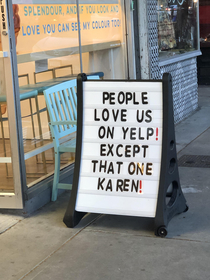 SPLENDOUR, AND IF YOU LOOK AND
LOVE YOU CAN SEE MY COLOUR TOO
PEOPLE
LOVE US
ON YELP!
EXCEPT
THAT ONE
KAREN!